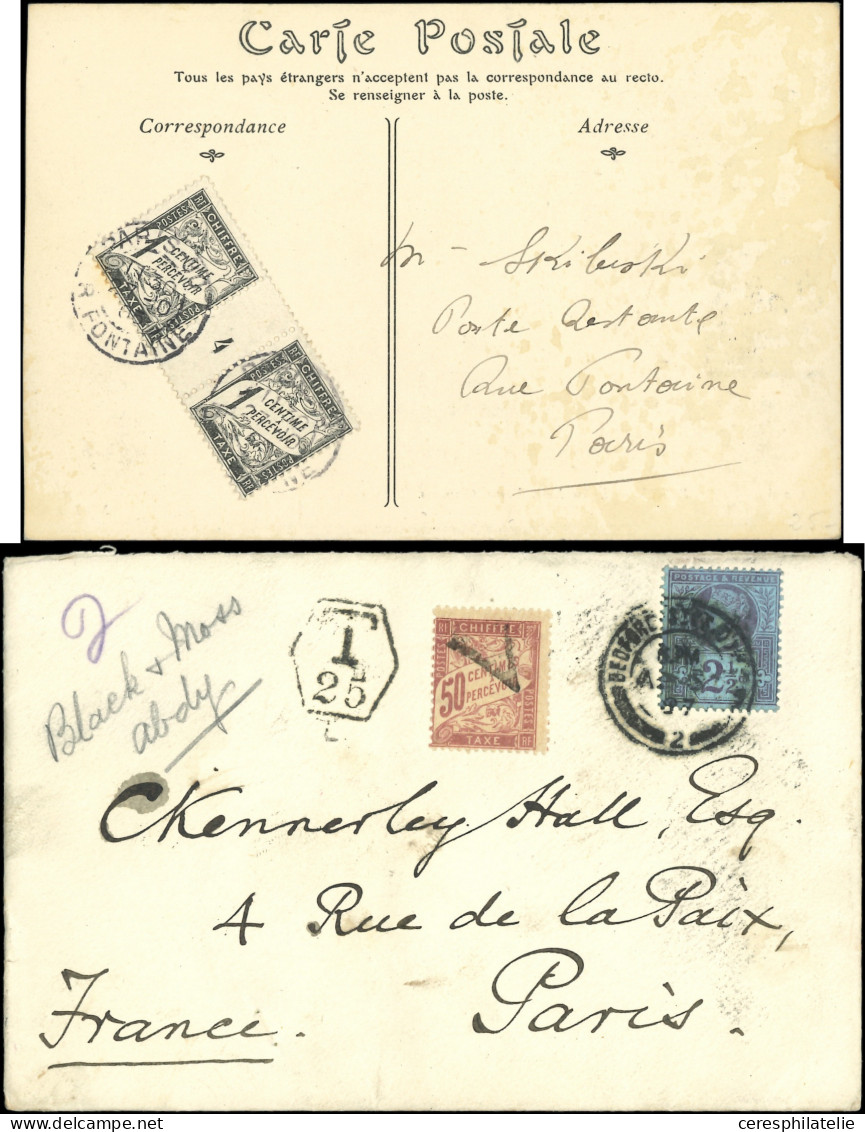 Carte Postale
Tous les pays étrangers n'acceptent pas la correspondance au recto.
Se renseigner à la poste.
Correspondance
Adresse
RF POSTES CHIFFRE
1 CENTIME
PERCEVOIR
TAXE POSTES
FONTAINE
4
RF POSTES CHIFFRE
1 CENTIME
PERCEVOIR
TAXE POSTES RF
Mr Skibuski
Poste Restante
Rue Fontaine
Paris
Black & Moss
abdy
T
25
L
RF CHIFFRE
50 CENTIMES
PERCEVOIR
POSTES
TAXE RF
POSTAGE & REVENUE
2½
2
CKennerley Hall, Esq.
4 Rue de la Paix,
Paris.
France.
ceresphilatelie